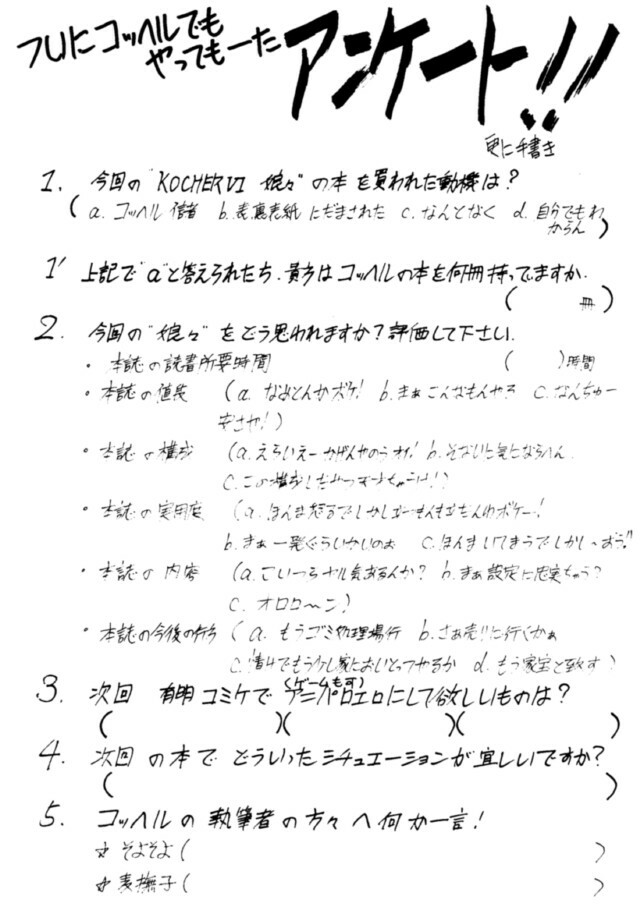 フリにコッヘルでも
やってもーた
アンケート!!
更に手書き
1. 今回の"KOCHER VI 娘々"の本を買われた動機は?
(a. コッヘル信者 b. 表裏表紙にだまされた c. なんとなく d. 自分でもわからん)
1' 上記で"a"と答えられたち、貴方はコッヘルの本を何冊持ってますか.
( 冊)
2. 今回の"娘々"をどう思われますか?評価して下さい.
・本誌の読書所要時間 ( )時間
・本誌の値段 (a. なめとんかボケ! b. まぁこんなもんやろ c. なんちゅー
安さや!)
・本誌の構成 (a. えらいえーかげんやのうオイ! b. そないに気にならへん.
c. この構成しかみつ
・本誌の実用度 (a. ほんま怒るでしかし
b. まぁ一発ぐらいかいのぉ c. ほんまいてまうでしかし〜おう!!
・本誌の内容 (a. こいつらヤル気あるんか? b. まぁ設定に忠実ちゃう?
c. オロロ〜ン)
・本誌の今後の行方 (a. もうゴミ処理場行 b. さぁ売りに行くかぁ
c. 情けでもう少し家においといてやるか d. もう家宝と致す)
3. 次回 有明コミケでアニパロエロ(ゲームも可)にして欲しいものは?
( )( )( )
4. 次回の本でどういったシチュエーションが宜しいですか?
( )
5. コッヘルの執筆者の方々へ何か一言!
☆そよそよ( )
☆麦撫子( )